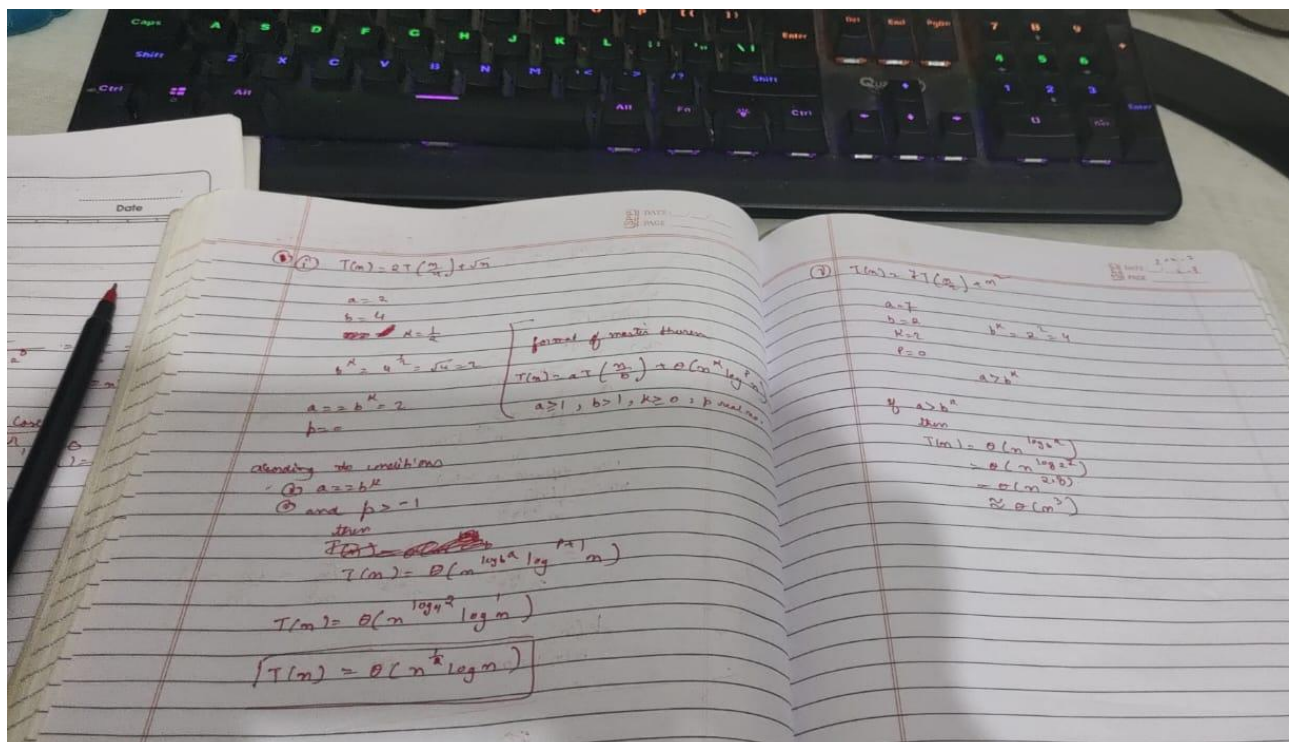 Caps A S D F G H J K L Enter
Shift Z X C V B N M Shift
Ctrl Alt Alt Fn Ctrl
Del End PgDn
7 8 9
4 5 6
1 2 3
0 Enter
Date
Case
DATE
PAGE
① T(n) = 2T(n/4) + √n
a = 2
b = 4
K = 1/2
b^K = 4^1/2 = √4 = 2
a == b^K = 2
p = 0
format of master theorem
T(n) = aT(n/b) + θ(n^K log^p n)
a ≥ 1, b > 1, K ≥ 0, p real no.
conditions
① a == b^K
② and p > -1
then
T(n) = θ(n^log_b a log^p+1 n)
T(n) = θ(n^log_4 2 log^1 n)
T(n) = θ(n^1/2 log n)
DATE
PAGE
T(n) = 7T(n/2) + n^2
a = 7
b = 2
K = 2
P = 0
b^K = 2^2 = 4
a > b^K
If a > b^K
then
T(n) = θ(n^log_b a)
= θ(n^log_2 7)
= θ(n^2.8)
≈ θ(n^3)